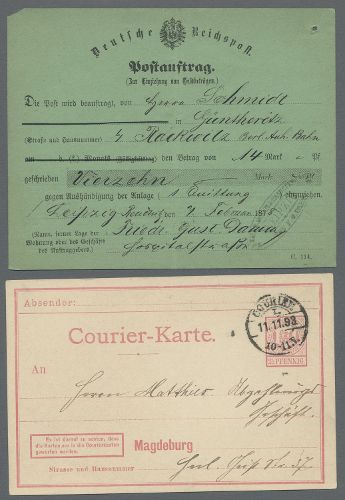 Deutsche Reichspost.
Postauftrag.
(Zur Einziehung von Geldbeträgen.)
Die Post wird beauftragt, von Herrn Schmidt
in Günthersitz
(Straße und Hausnummer) Rackwitz Berl. Anh. Bahn
am d. (J.) Monats den Betrag von 14 Mark Pf
geschrieben Vierzehn Mark
gegen Aushändigung der Anlage (1 Quittung) einzuziehen.
Leipzig Reudnitz den 7 Februar 187
(Name, ferner Lage der
Wohnung oder des Geschäfts
des Auftraggebers.)
Friedr. Gust. Damm
Hospitalstraße
C. 114.
Absender:
COURIER
11.11.93
10-11V.
Courier-Karte.
2½ PFENNIG
An
Herrn Matthies
Geschäft
Es ist darauf zu achten, dass
die Karten nur in die Courierkasten
geworfen werden.
Magdeburg
Strasse und Hausnummer